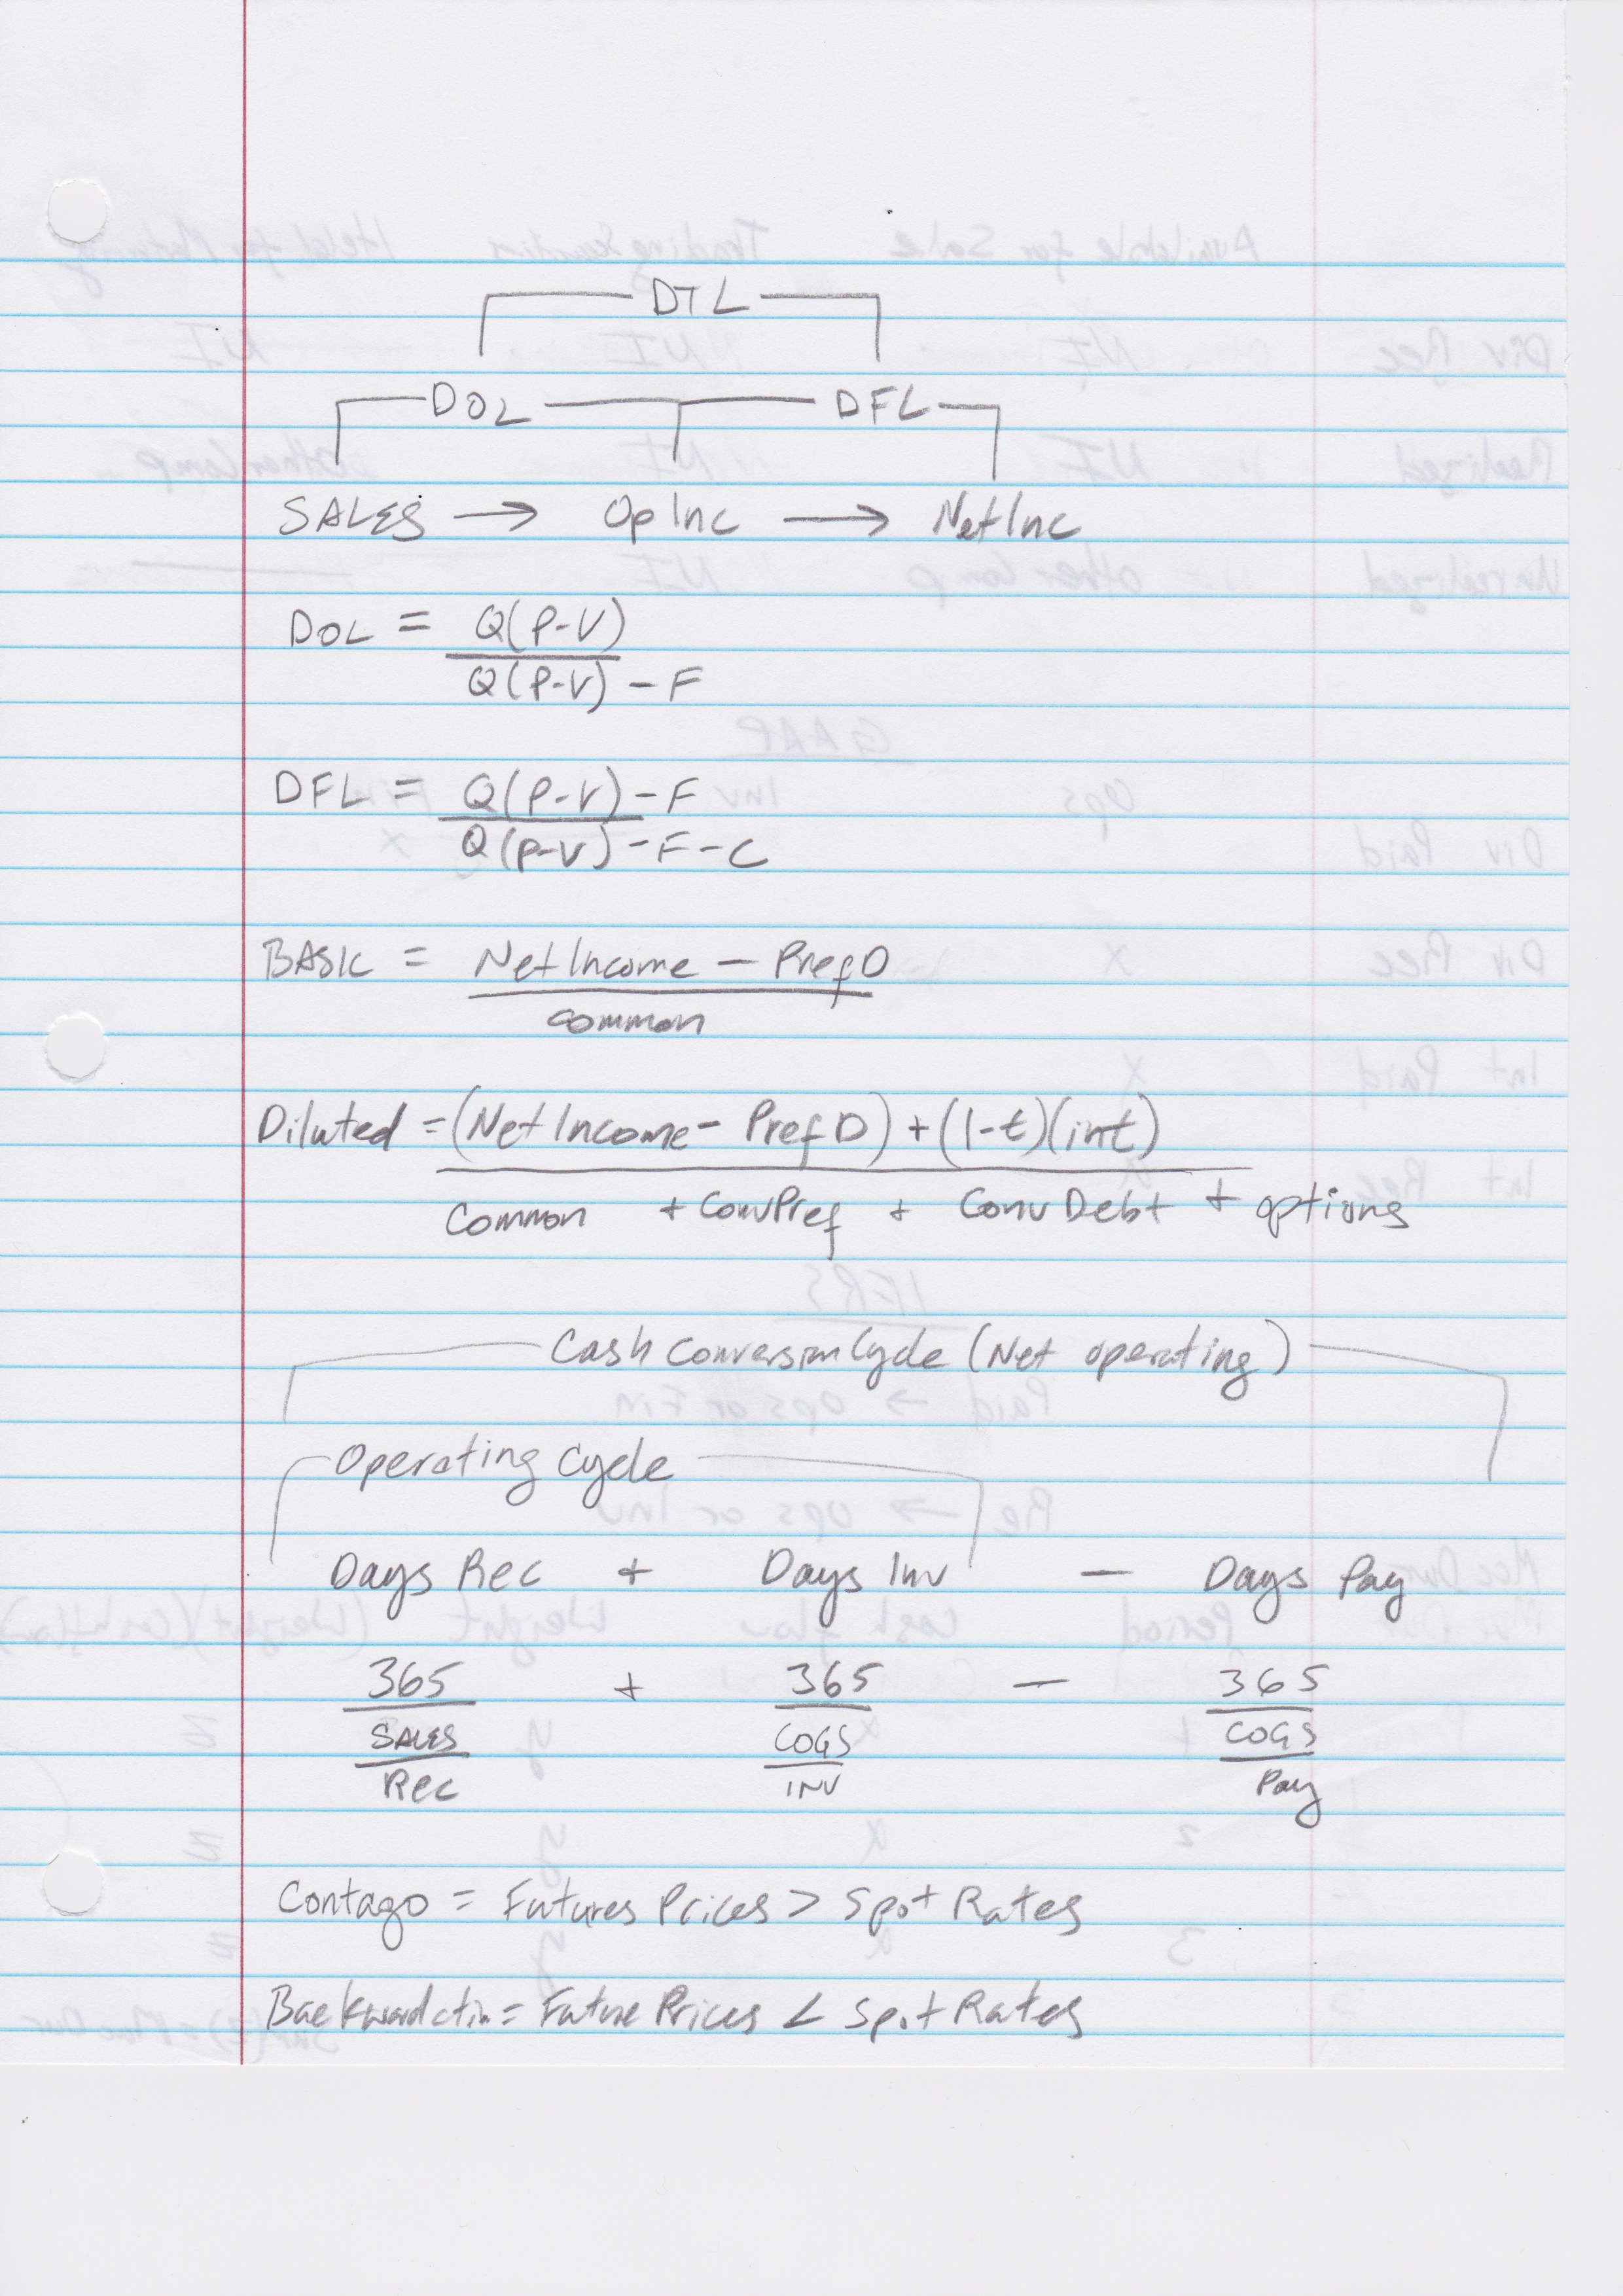 DTL
DOL DFL
SALES → Op Inc → Net Inc
DOL = Q(P-V)
Q(P-V) - F
DFL = Q(P-V) - F
Q(P-V) - F - C
BASIC = Net Income - Pref D
common
Diluted = (Net Income - Pref D) + (1-t)(int)
Common + ConvPref + Conv Debt + options
Cash Conversion Cycle (Net operating)
Operating Cycle
Days Rec + Days Inv - Days Pay
365 + 365 - 365
SALES COGS COGS
Rec INV Pay
Contago = Futures Prices > Spot Rates
Backwardctin = Future Prices < Spot Rates